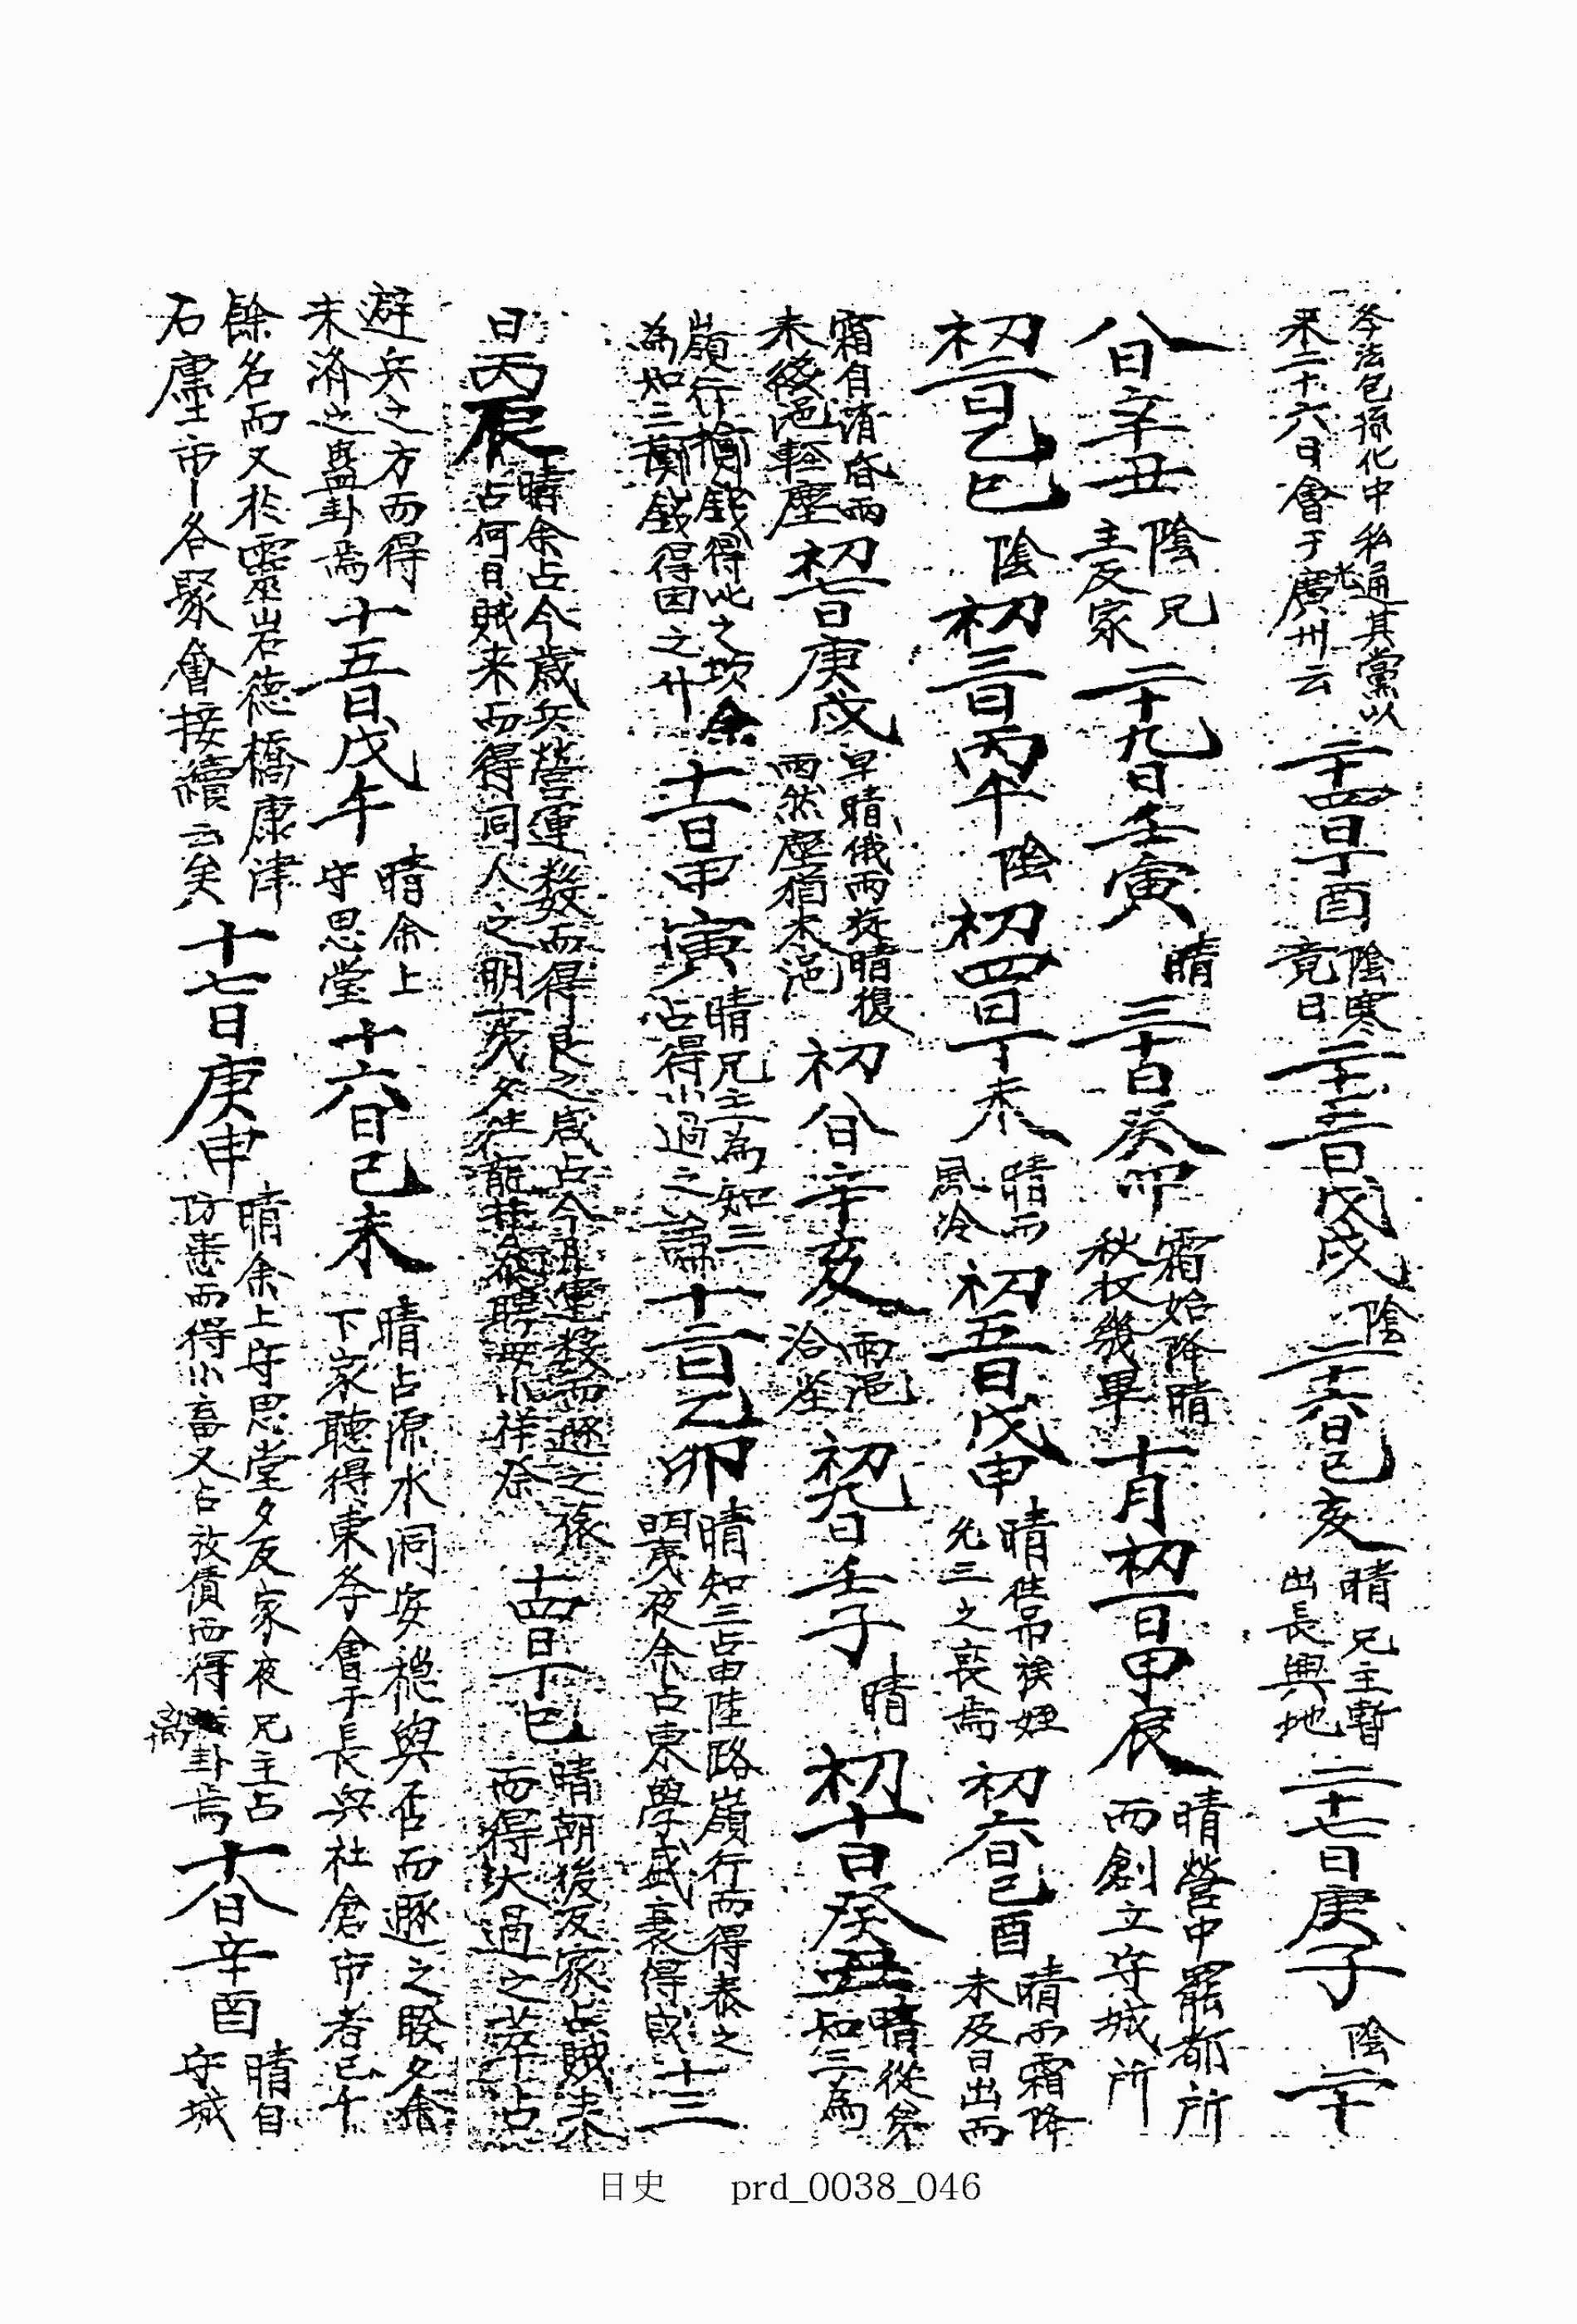 李法包孫化中私通其黨以
来二十六日會于光廣州云
二十四日丁酉
陰寒
竟日
二十五日戊戌
陰
二十六日己亥
晴兄主暫
出長興地
二十七日庚子
陰
二十
八日辛丑
陰兄
主反家
二十九日壬寅
晴
三十日癸卯
霜始降晴
秋收幾畢
十月初一日甲辰
晴營中罷都所
而創立守城所
初二日乙巳
陰
初三日丙午
陰
初四日丁未
晴而
風冷
初五日戊申
晴徃吊族姪
允三之喪焉
初六日己酉
晴而霜降
未及日出而
霜自消昏雨
未後浥輕塵
初七日庚戌
早晴俄雨旋晴復
雨然塵猶未浥
初八日辛亥
雨浥
洽崔
初九日壬子
晴
初十日癸丑
晴從弟
知三為
嶺行擲錢得比之坎余
為知三擲錢得困之升
十一日甲寅
晴兄主為知三
占得小過之謙
十二日乙卯
晴知三占由陸路嶺行而得泰之
明夷夜余占東學盛衰得咸
十三
日丙辰
晴余占今歲兵營運數而得艮之咸占今月運數而遯之旅
占何日賊来而得同人之明夷夕徃龍井叅聘母小祥祭
十四日丁巳
晴朝後反家占賊来
而得大過之萃占
避兵之方而得
未濟之蠱卦焉
十五日戊午
晴余上
守思堂
十六日己未
晴占源水洞安穏與否而遯之睽夕余
下家聽得東學會于長興社倉市者已千
餘名而又於靈岩德橋康津
石廛市各聚會接續云矣
十七日庚申
晴余上守思堂夕反家夜兄主占
防患而得小畜又占放債而得離卦焉
十八日辛酉
晴自
守城
日史 prd_0038_046